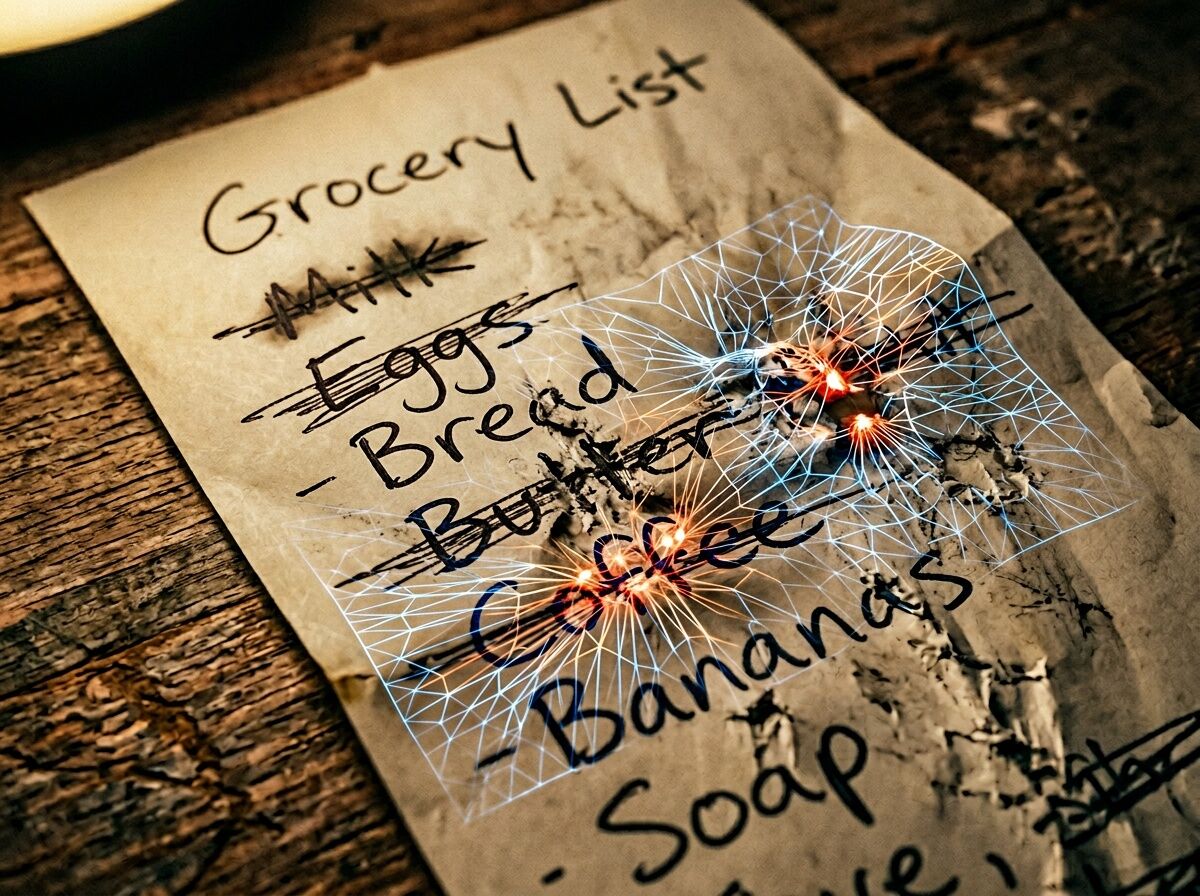 Grocery List
Milk
Eggs
- Bread
Butter
Coffee
- Bananas
- Soap